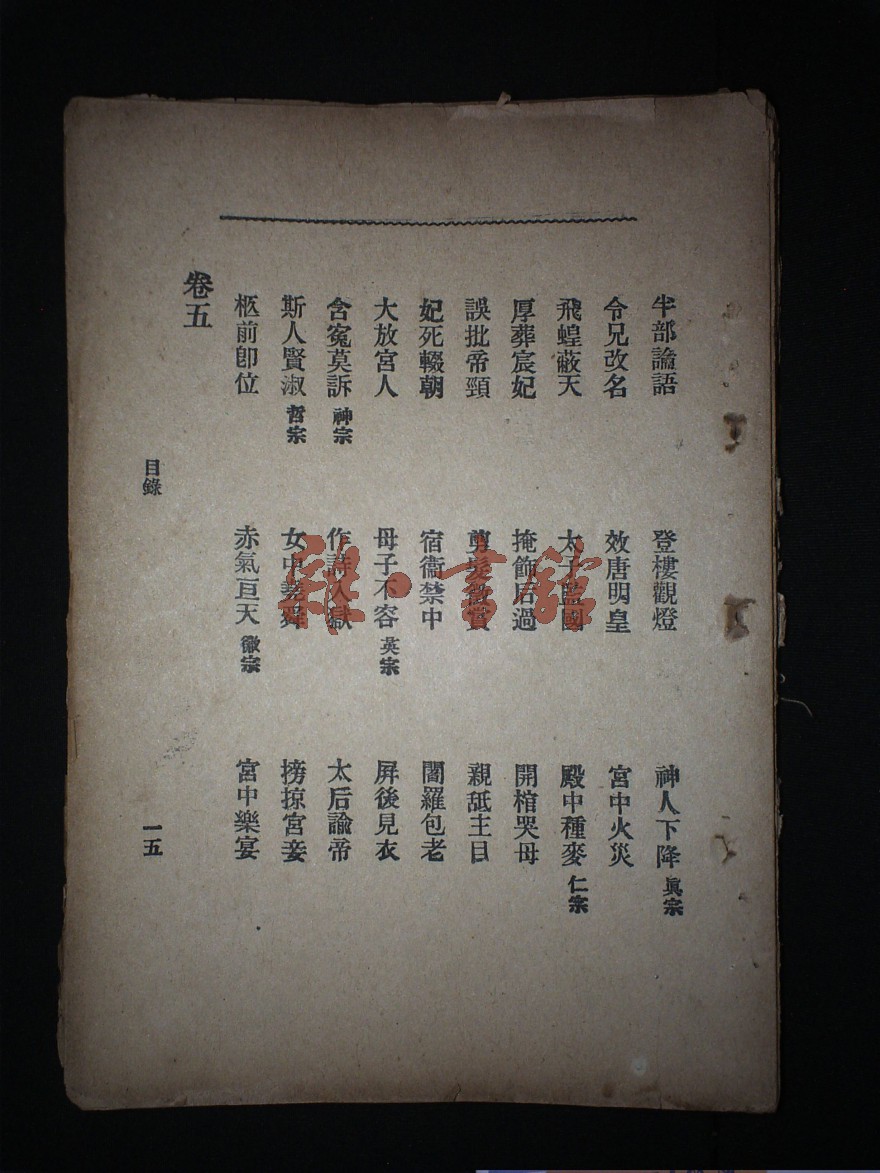 半部論語 登樓觀燈 神人下降 眞宗
令兄改名 效唐明皇 宮中火災
飛蝗蔽天 太子監國 殿中種麥 仁宗
厚葬宸妃 掩飾后過 開棺哭母
誤批帝頸 剪髮賞 親舐主目
妃死輟朝 宿衞禁中 閻羅包老
大放宮人 母子不容 英宗 屛後見衣
含寃莫訴 神宗 作詩入獄 太后諭帝
斯人賢淑 哲宗 女中堯舜 搒掠宮妾
柩前卽位 赤氣亘天 徽宗 宮中樂宴
卷五
目錄 一五
雜·書館